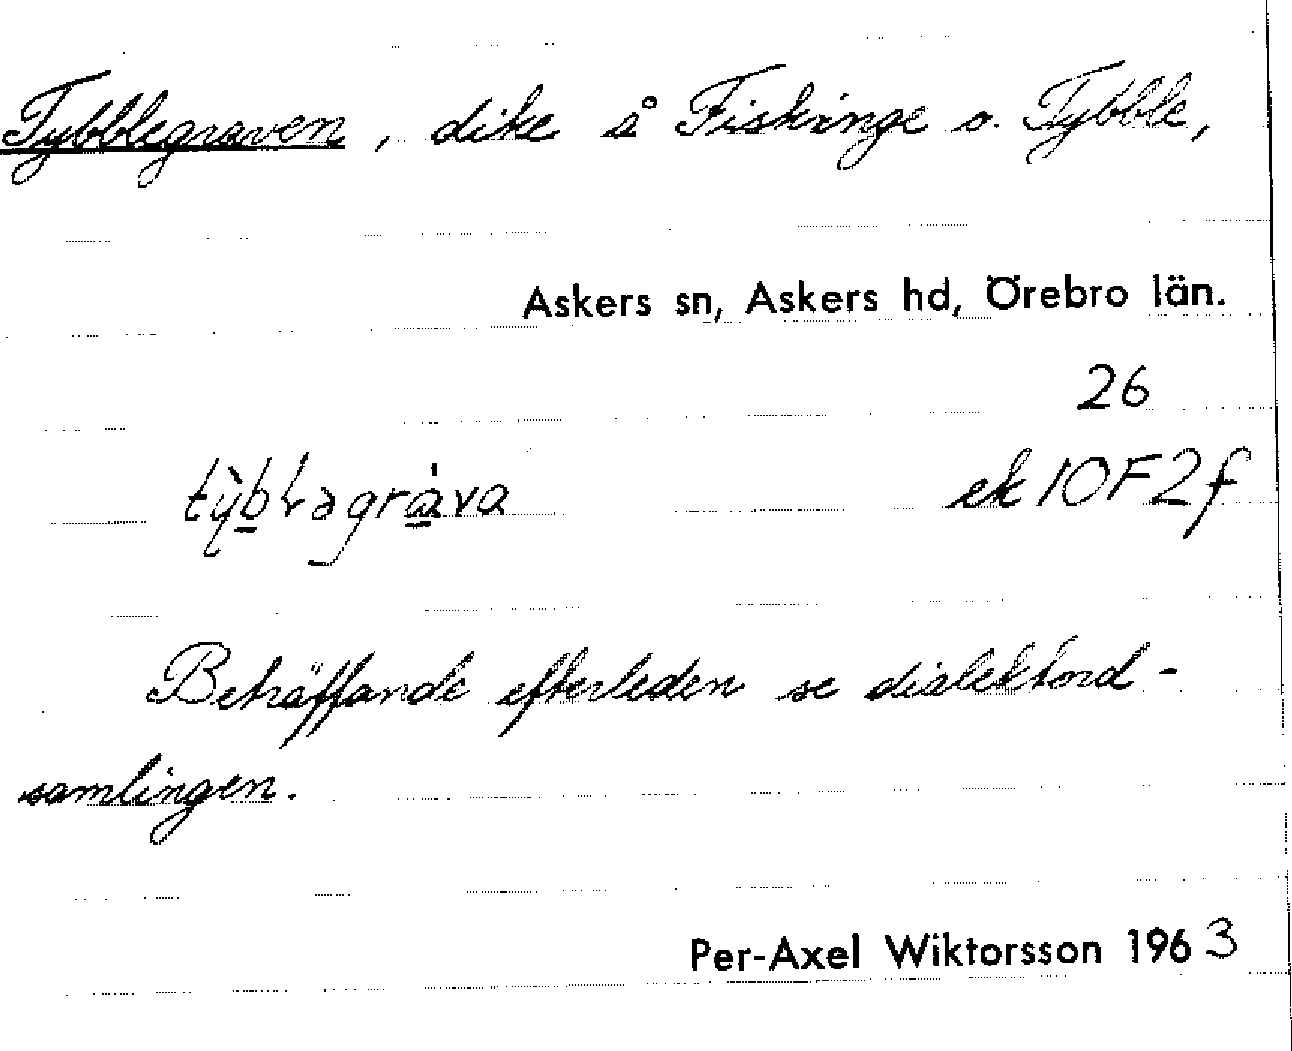 Tybblegraven, dike å Fiskinge o. Tybble,
Askers sn, Askers hd, Örebro län.
26
ek 10F2f
Beträffande efterleden se dialektord-
samlingen.
Per-Axel Wiktorsson 1963